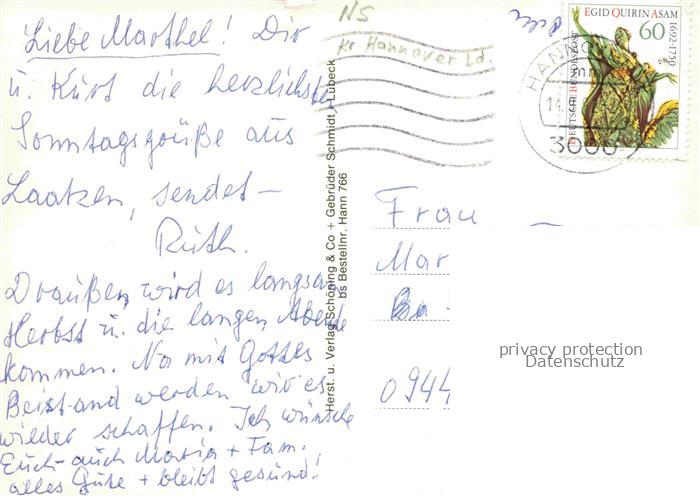 Liebe Marthel! Dir
u. Kurt die herzlichsten
Sonntagsgrüße aus
Laatzen, sendet –
Ruth.
Draußen wird es langsam
Herbst u. die langen Abende
kommen. Na mit Gottes
Beistand werden wir es
wieder schaffen. Ich wünsche
Euch auch Maria + Fam.
alles Gute + bleibt gesund!
NS
Kr. Hannover Ld.
EGID QUIRIN ASAM
1692-1750
60
DEUTSCHE BUNDESPOST
HANNOV
14.
mm
3000
Herst. u. Verlag Schöning & Co + Gebrüder Schmidt, Lübeck
bs Bestellnr. Hann 766
Frau
Mar
Ba
0944
privacy protection
Datenschutz